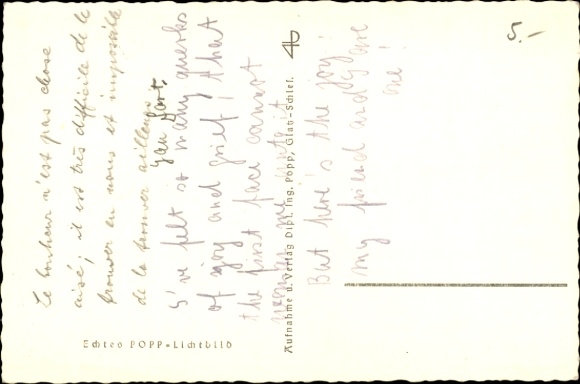 Le bonheur n'est pas chose
aisé; il est très difficile de le
trouver en nous et impossible
de la trouver ailleurs
I've felt so many querks
of joy and grief / that
the first face cannot
me
But here's the joy:
my friend and I are
one!
Echtes POPP=Lichtbild
Aufnahme u. Verlag Dipl. Ing. Popp,
5.-